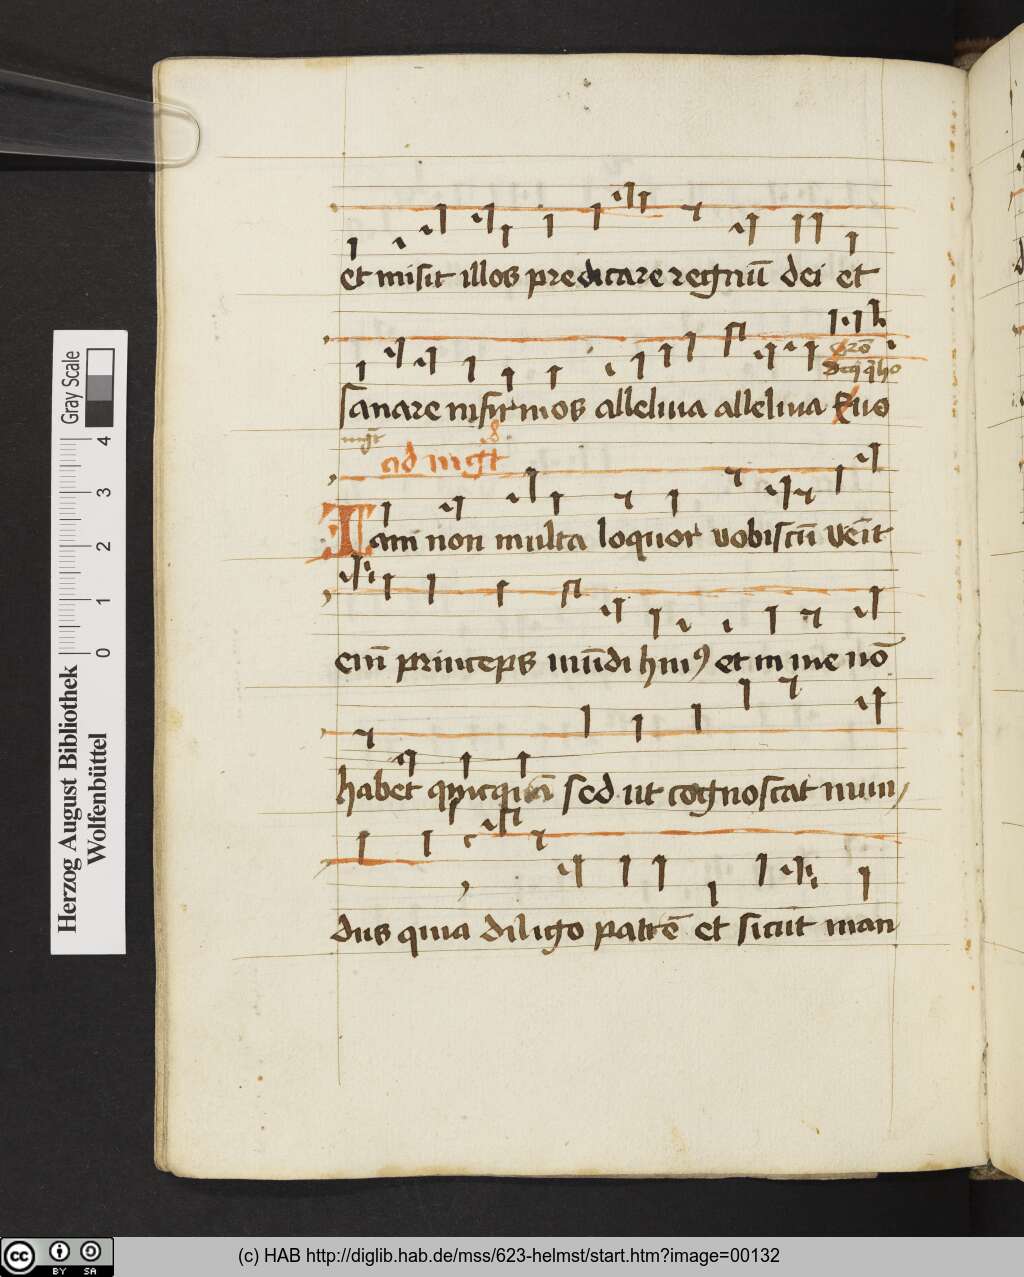 et misit illos predicare regnū dei et
sanare infirmos alleluia alleluia Euo
ad mgt
Iam non multa loquor vobiscū venīt
eni̅ princeps mūdi huiꝰ et in me nō
habet quicquā sed ut cognoscat mun
dus quia diligo patrē et sicut man
Herzog August Bibliothek
Wolfenbüttel
0 1 2 3 4
Gray Scale
CC BY SA
(c) HAB http://diglib.hab.de/mss/623-helmst/start.htm?image=00132